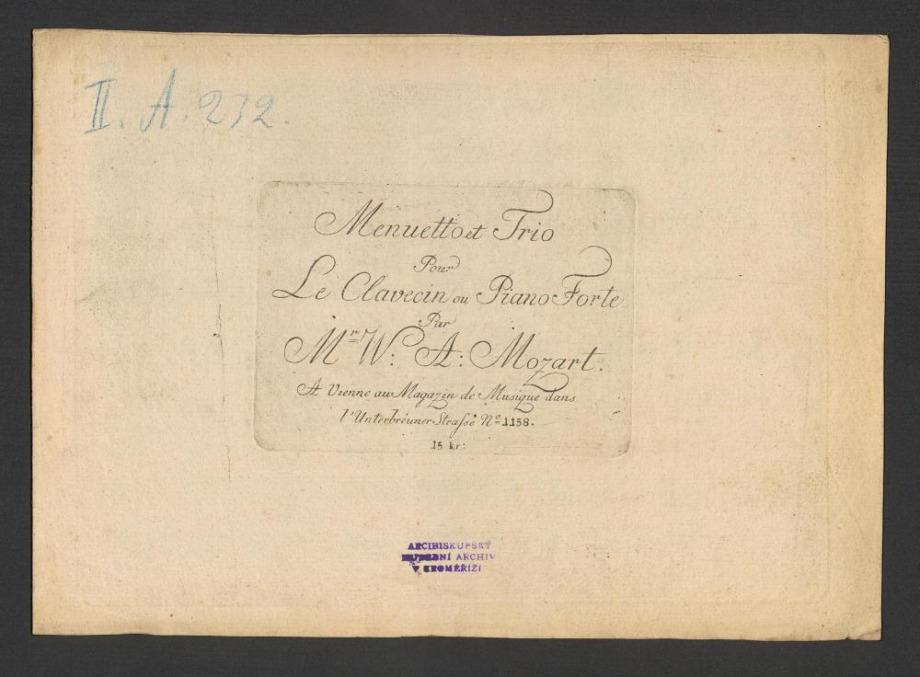 II. A. 232.
Menuetto et Trio
Pour
Le Clavecin ou Piano Forte
Par
Mr. W: A: Mozart.
A Vienne au Magazin de Musique dans
l'Unterbreuner Strasse No. 1158.
15 kr:
ARCIBISKUPSKÝ
HUDEBNÍ ARCHIV
V KROMĚŘÍŽI